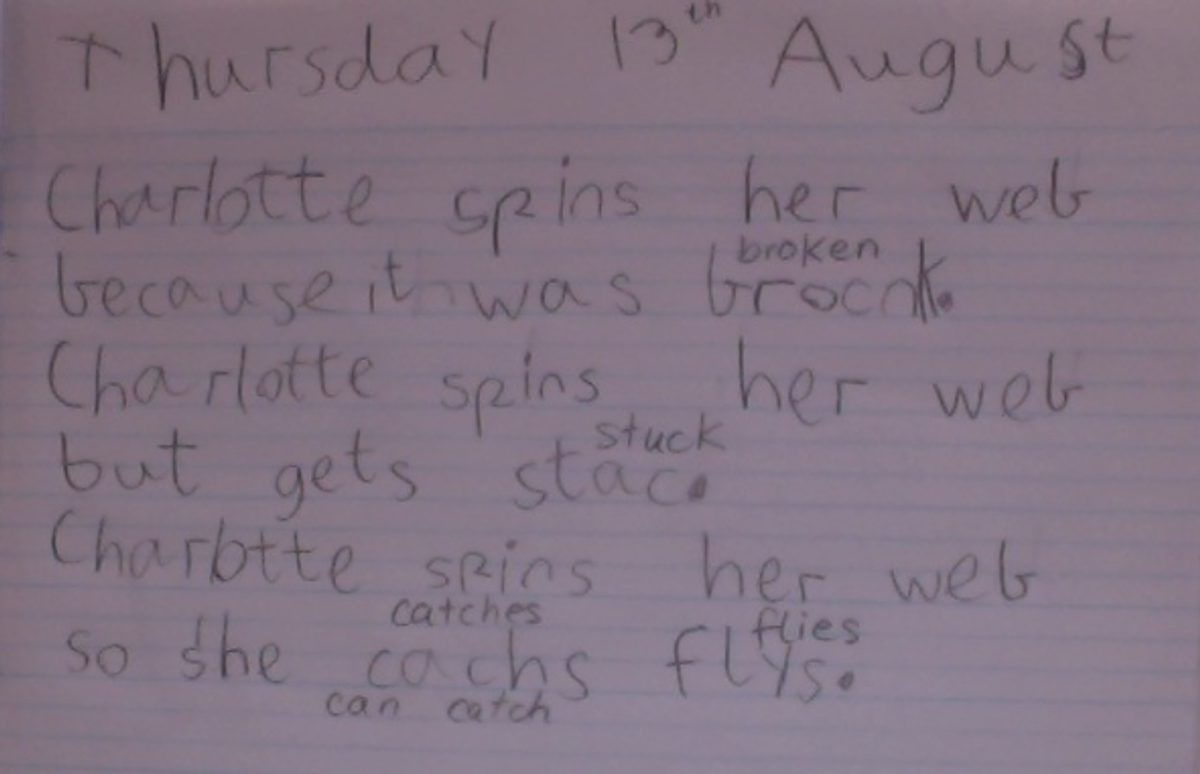 Thursday 13th August
Charlotte spins her web
broken
because it was brocnk.
Charlotte spins her web
stuck
but gets stac.
Charlotte spins her web
catches flies
so she cachs flys.
can catch